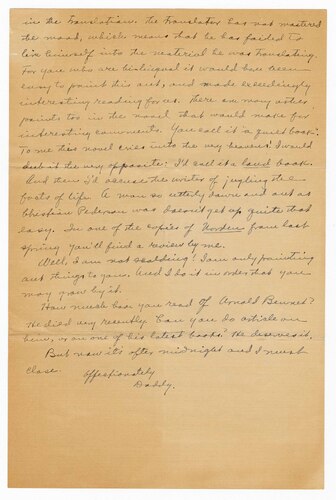 in the translation. the translator has not mastered
the mood, which means that he has failed to
live himself into the material he was translating.
For you who are bi-lingual it would have been
easy to point this out, and made exceedingly
interesting reading for us. There are many other
points too in the novel that would make for
interesting comments. You call it "a quiet book".
To me this novel cries into the very heavens! I would
say it the very opposite: I'd call it a loud book.
And then I'd accuse the writer of jugling the
facts of life. A man so utterly down and out as
Christian Pederson was doesn't get up quite that
easy. In one of the copies of Norden from last
spring you'll find a review by me.
Well, I am not scolding! I am only pointing
out things to you. And I do it in order that you
may grow by it.
How much have you read of Arnold Bennet?
He died very recently. Can you do article on
him, or on one of his latest books? He deserves it.
But now it's after midnight and I must
close.
Affectionately
Daddy.